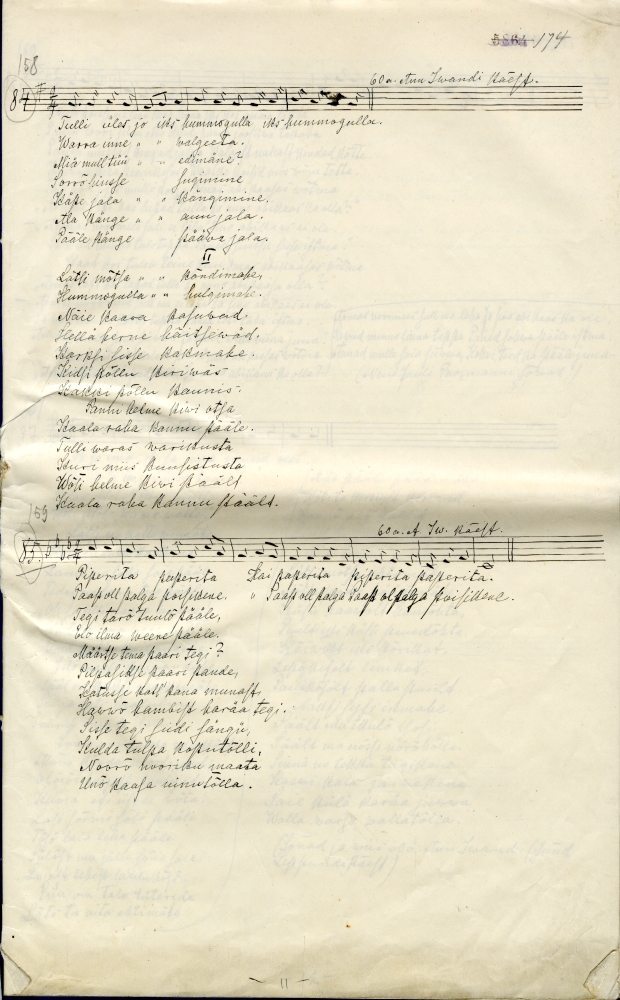 5864 174
158
60 a. Ann Iwandi käest.
84
Tulli üles jo iks hummogulla iks hummogulla.
Warra inne " " walgeeta.
Miä mull tüü " " edimäne?
Sorrõ hiusse sugimine
Käpe jala " " kängimine.
Ala känge " " aun jala.
Pääle känge pääwa jala.
II
Lätsi mõtsa " " kõndimahe,
Hummogulla " " hulgimahe.
Näie kaara kasuwad.
Hellä herne häitsewäd.
Karksi sisse kakmahe.
Kidsi põllen kiriwäs
Kakki põllen kaunis.
Panni helme kiwi otsa
Kaala raha kannu pääle.
Tulli waras warikusta
Kuri miis kuusistusta
Wõtt helme kiwi päält
Kaala raha kannu päält.
159
60 a. A. Iw. käest.
85
Piperita paperita Kai paperita piperita paperita.
Paas oll palga poisikene. " Paas oll palga paas ol palga poisikene.
Tegi tarõ tuulõ pääle,
Elo ilma weere pääle.
Määrtse tema paari tegi?
Pilpasitse paari pande,
Katusse katt' kana munast,
Hawwõ luambist karäa tegi.
Sisse tegi siidi sängü,
Kulda tulpa koputõlli,
Noorõ nooriku maata
Unõ kaasa uinutõlla.
11